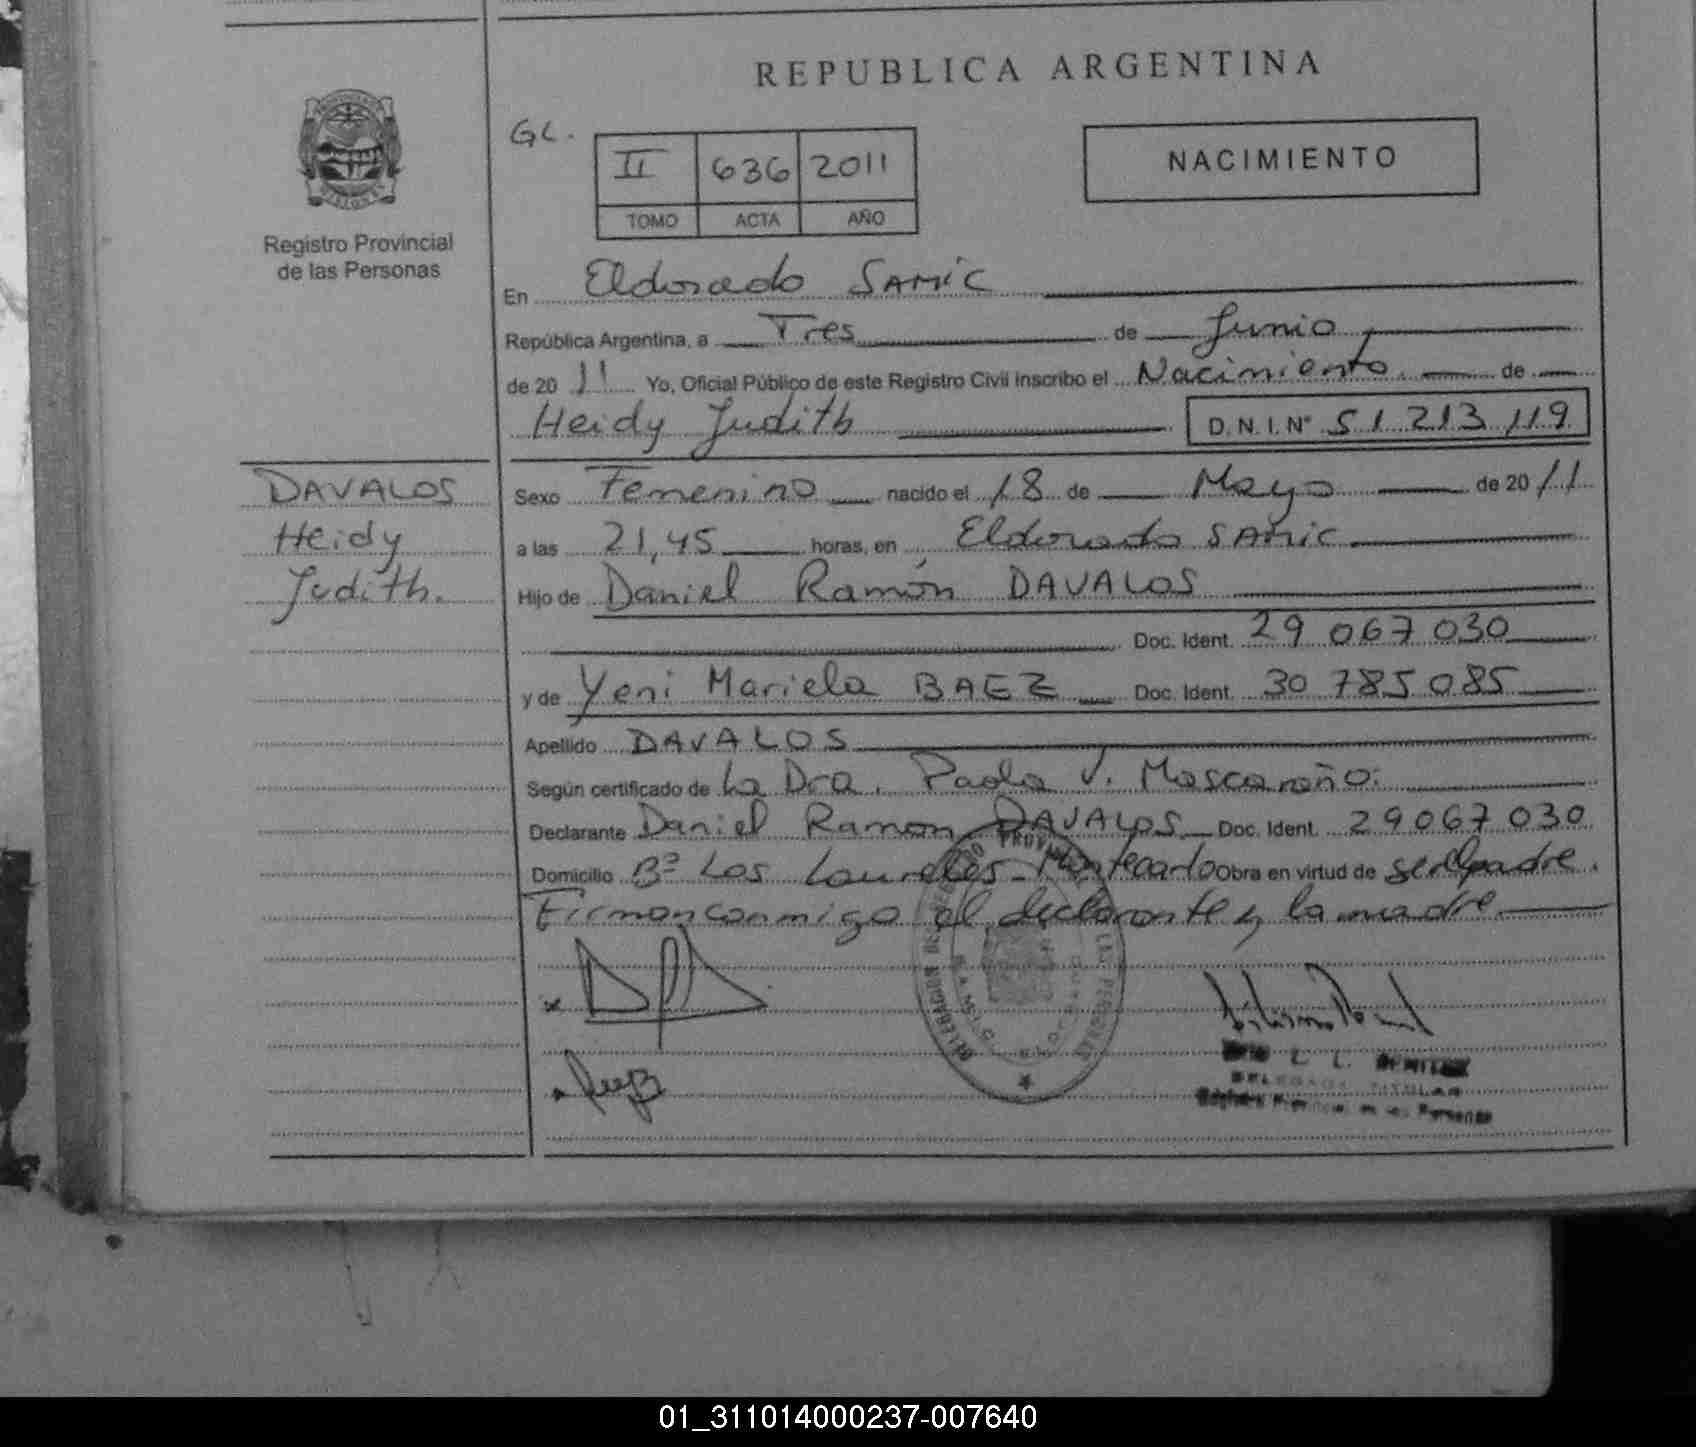 REPUBLICA ARGENTINA
GL.
II 636 2011
TOMO ACTA AÑO
NACIMIENTO
Registro Provincial
de las Personas
En Eldorado SAMIC
República Argentina, a Tres de Junio
de 2011 Yo, Oficial Público de este Registro Civil inscribo el Nacimiento de
Heidy Judith D.N.I. N° 51 213 119
DAVALOS
Heidy
Judith.
Sexo Femenino nacido el 18 de Mayo de 2011
a las 21,45 horas, en Eldorado SAMIC
Hijo de Daniel Ramón DAVALOS
Doc. Ident. 29 067 030
y de Yeni Mariela BAEZ Doc. Ident. 30 785 085
Apellido DAVALOS
Según certificado de La Dra. Paola V. Mascaroño.
Declarante Daniel Ramon DAVALOS Doc. Ident. 29 067 030
Domicilio Bº Los Laureles - Montecarlo Obra en virtud de ser el padre.
Firman conmigo el declarante y la madre
DELEGADA TITULAR
01_311014000237-007640